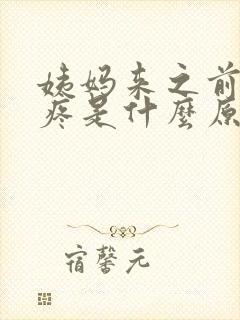 姨妈来之前
疼是什麼原
宿馨元